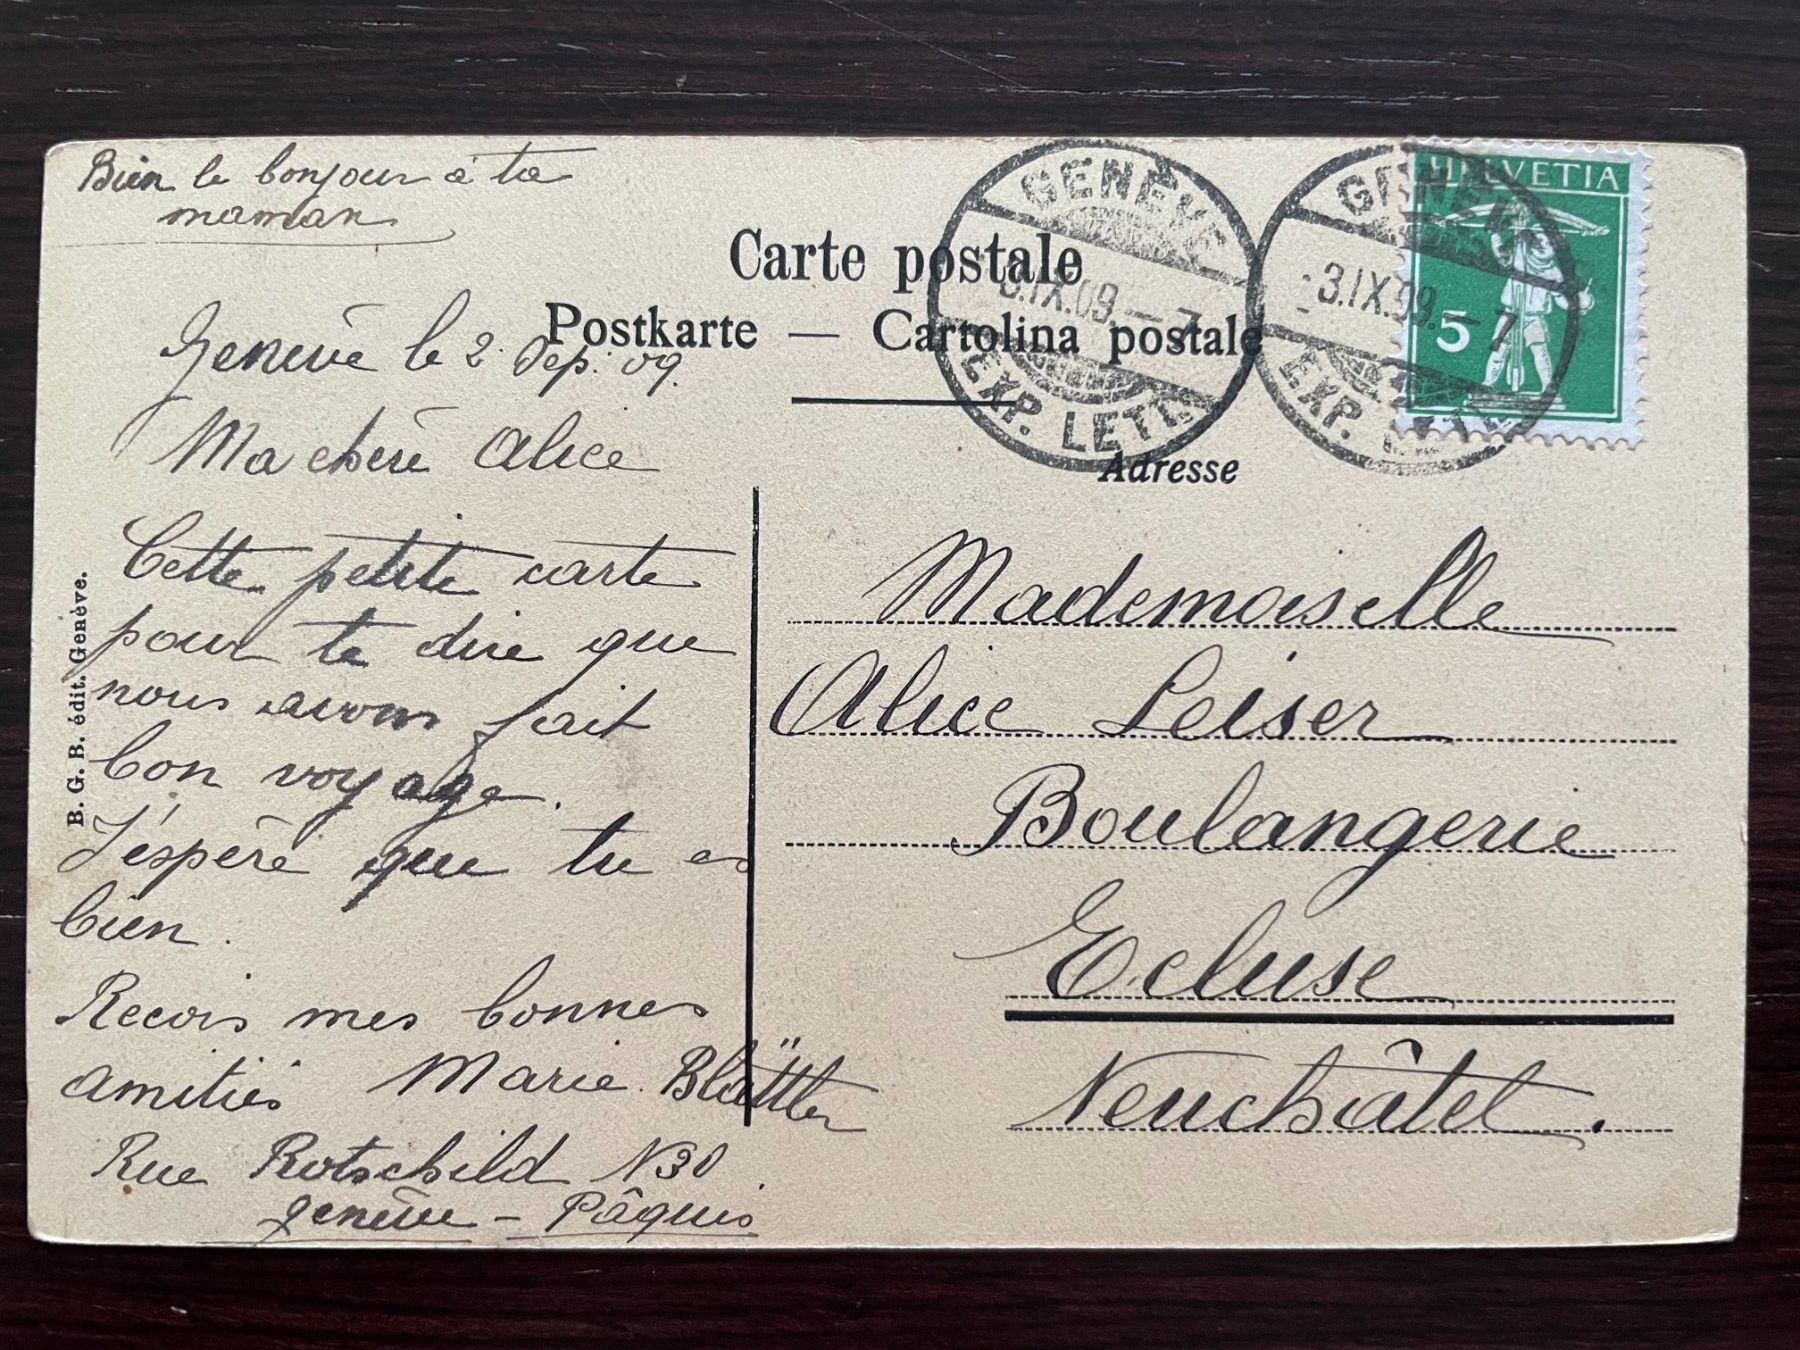 Bien le bonjour à ta
maman
Carte postale
Postkarte — Cartolina postale
Adresse
GENÈVE
3.IX.09.–7
EXP. LETTR.
GENÈVE
3.IX.09.–7
EXP. LETTR.
HELVETIA
5
Genève le 2. Sep. 09.
Ma chère Alice
Cette petite carte
pour te dire que
nous avons fait
bon voyage.
J'éspère que tu es
bien.
Recois mes bonnes
amitiés Marie Blättler
Rue Rotschild N30
Genève – Pâquis
B. G. B. édit. Genève.
Mademoiselle
Alice Leiser
Boulangerie
Ecluse
Neuchâtel.